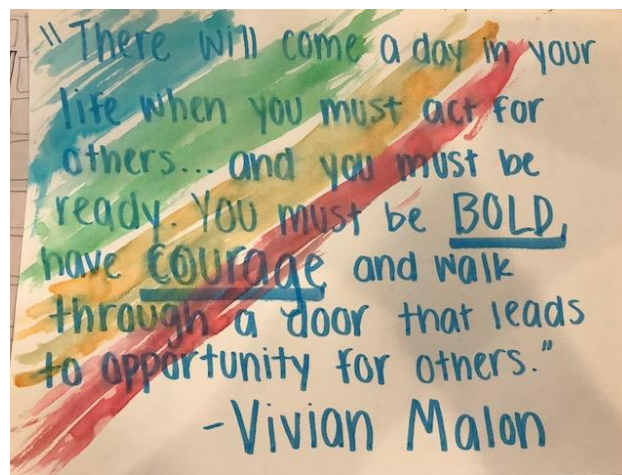 "There will come a day in your
life when you must act for
others... and you must be
ready. You must be BOLD,
have courage and walk
through a door that leads
to opportunity for others."
-Vivian Malon